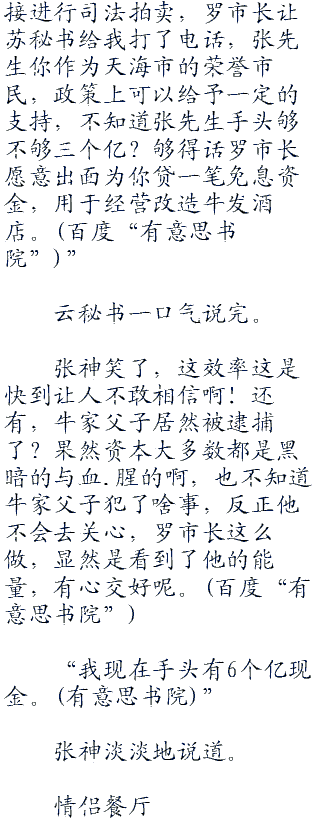 接进行司法拍卖，罗市长让
苏秘书给我打了电话，张先
生你作为天海市的荣誉市
民，政策上可以给予一定的
支持，不知道张先生手头够
不够三个亿？够得话罗市长
愿意出面为你贷一笔免息资
金，用于经营改造牛发酒
店。(百度“有意思书
院”)”
云秘书一口气说完。
张神笑了，这效率这是
快到让人不敢相信啊！还
有，牛家父子居然被逮捕
了？果然资本大多数都是黑
暗的与血.腥的啊，也不知道
牛家父子犯了啥事，反正他
不会去关心，罗市长这么
做，显然是看到了他的能
量，有心交好呢。(百度“有
意思书院”)
“我现在手头有6个亿现
金。(有意思书院)”
张神淡淡地说道。
情侣餐厅